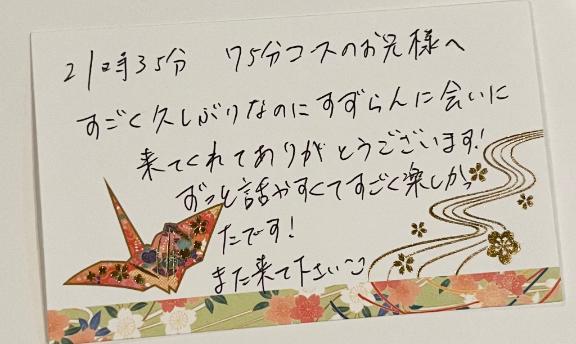 21時35分 75分コースのお兄様へ
すごく久しぶりなのにすずらんに会いに
来てくれてありがとうございます!
ずっと話やすくてすごく楽しかっ
たです!
また来て下さい